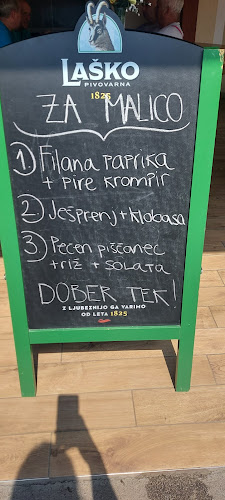 LAŠKO
PIVOVARNA
1825
ZA MALICO
1) Filana paprika
+ pire krompir
2) Ješprenj + klobasa
3) Pečen piščanec
+ riž + solata
DOBER TEK!
Z LJUBEZNIJO GA VARIMO
OD LETA 1825